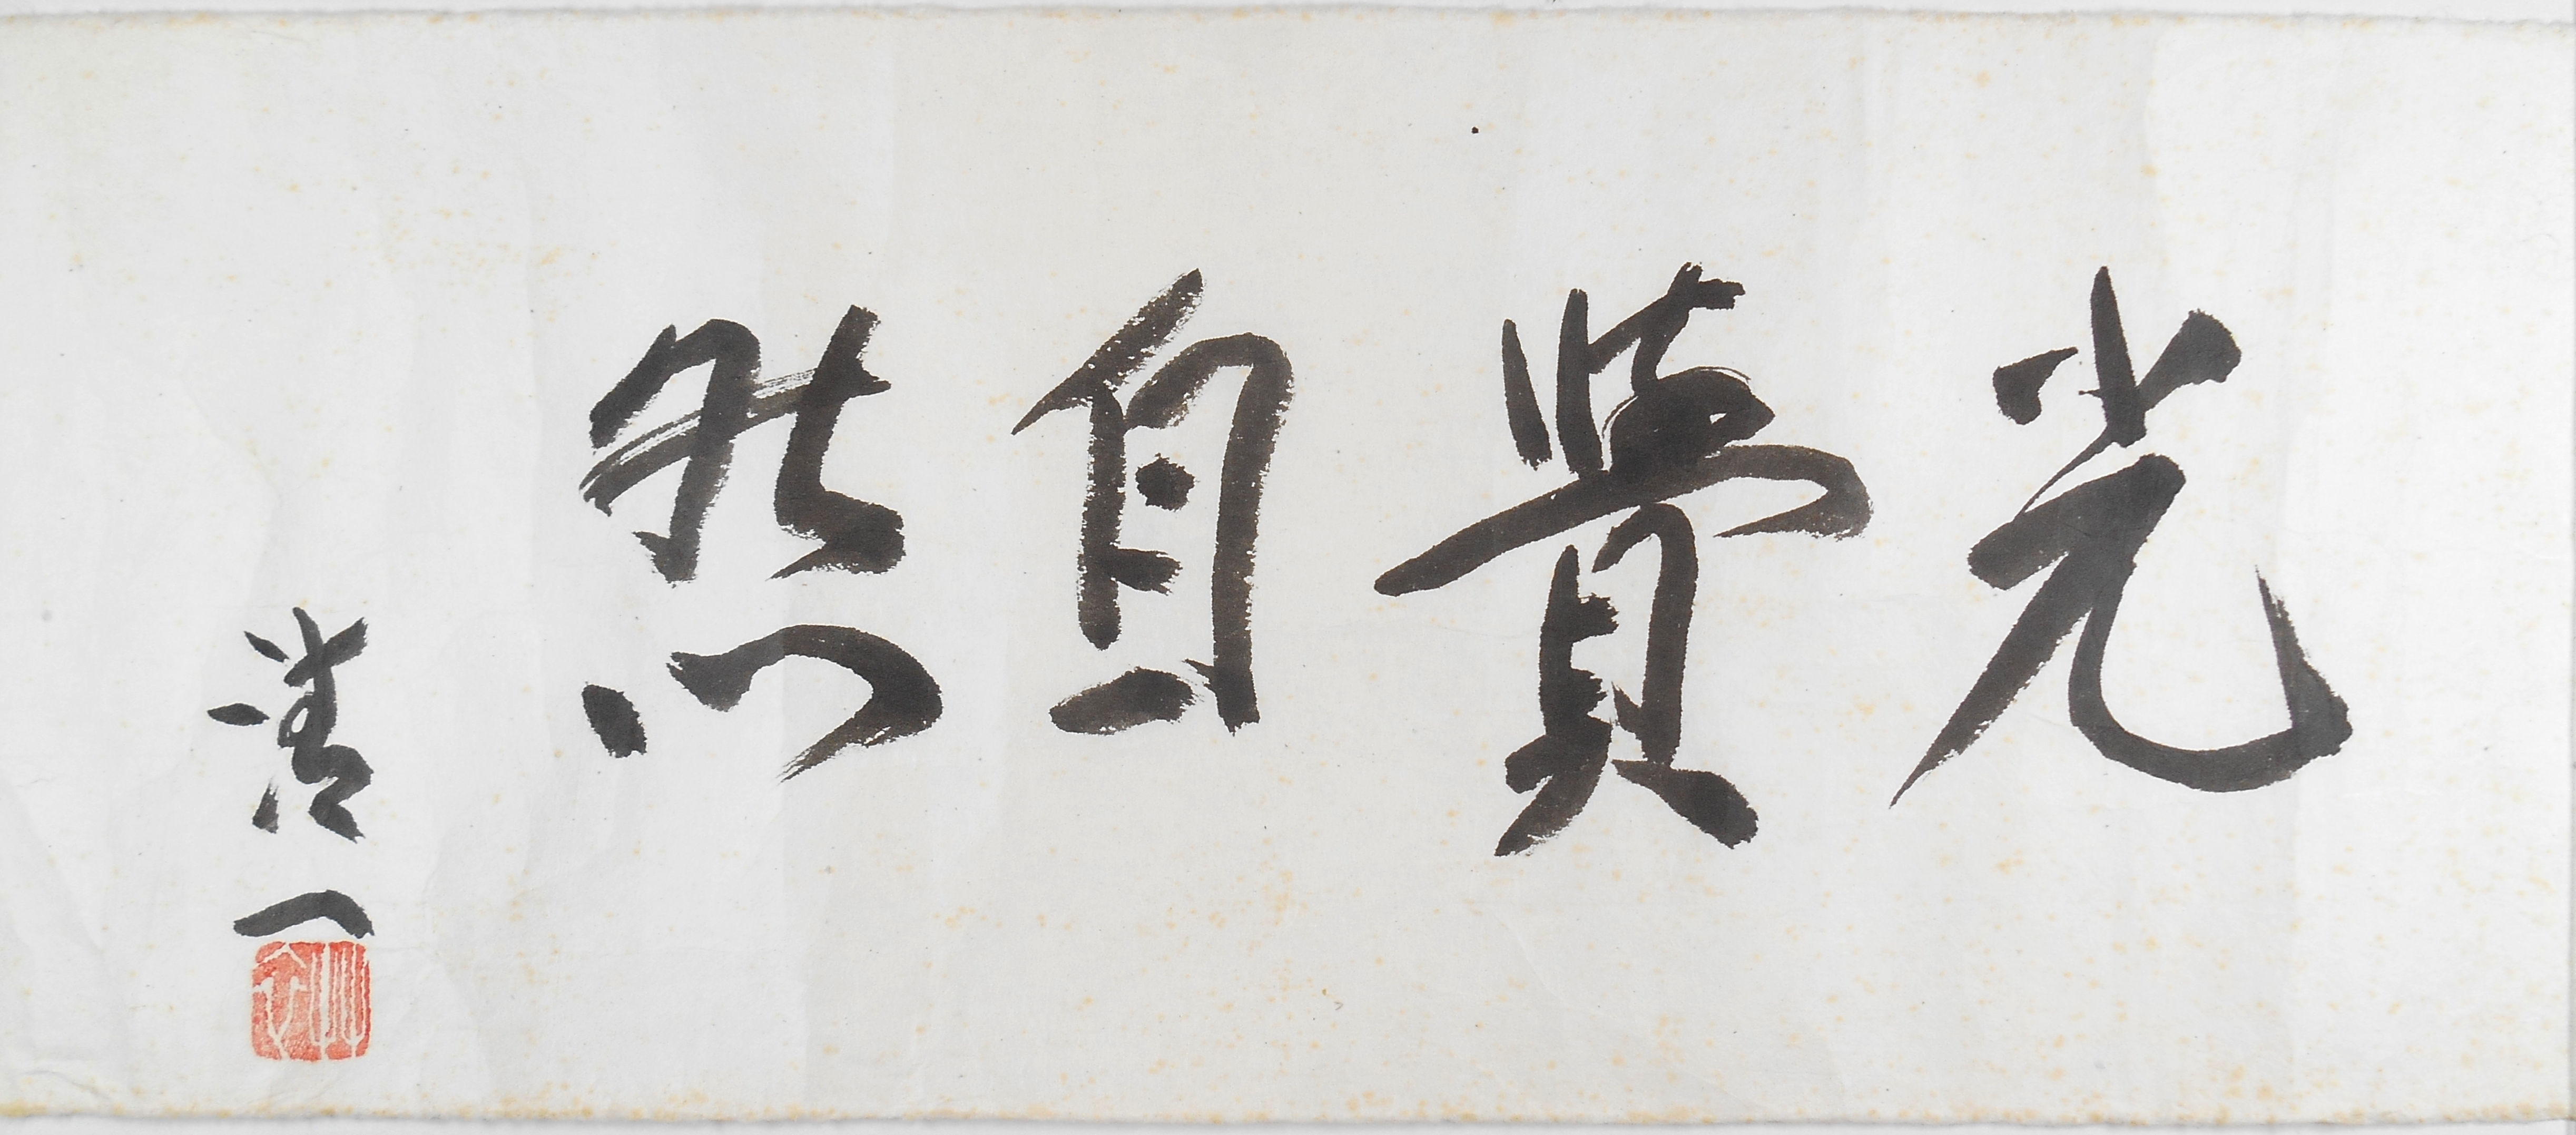 光覺自然
清一